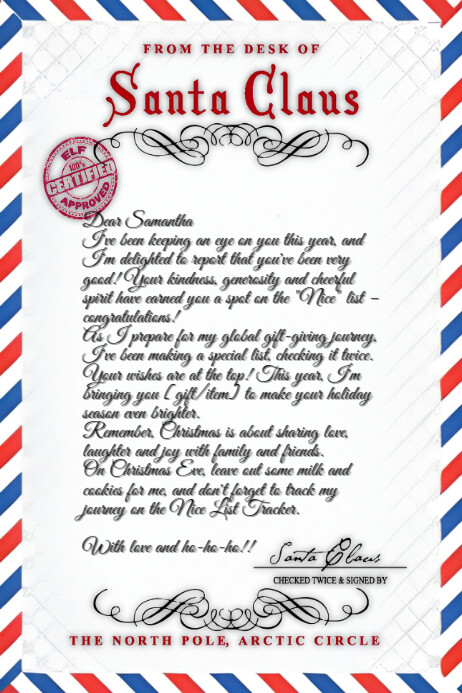 FROM THE DESK OF
Santa Claus
ELF
100%
CERTIFIED
APPROVED
Dear Samantha
I've been keeping an eye on you this year, and
I'm delighted to report that you've been very
good! Your kindness, generosity and cheerful
spirit have earned you a spot on the "Nice" list –
congratulations!
As I prepare for my global gift-giving journey,
I've been making a special list, checking it twice.
Your wishes are at the top! This year, I'm
bringing you [gift/item] to make your holiday
season even brighter.
Remember, Christmas is about sharing love,
laughter and joy with family and friends.
On Christmas Eve, leave out some milk and
cookies for me, and don't forget to track my
journey on the Nice List Tracker.
With love and ho-ho-ho!!
Santa Claus
CHECKED TWICE & SIGNED BY
THE NORTH POLE, ARCTIC CIRCLE